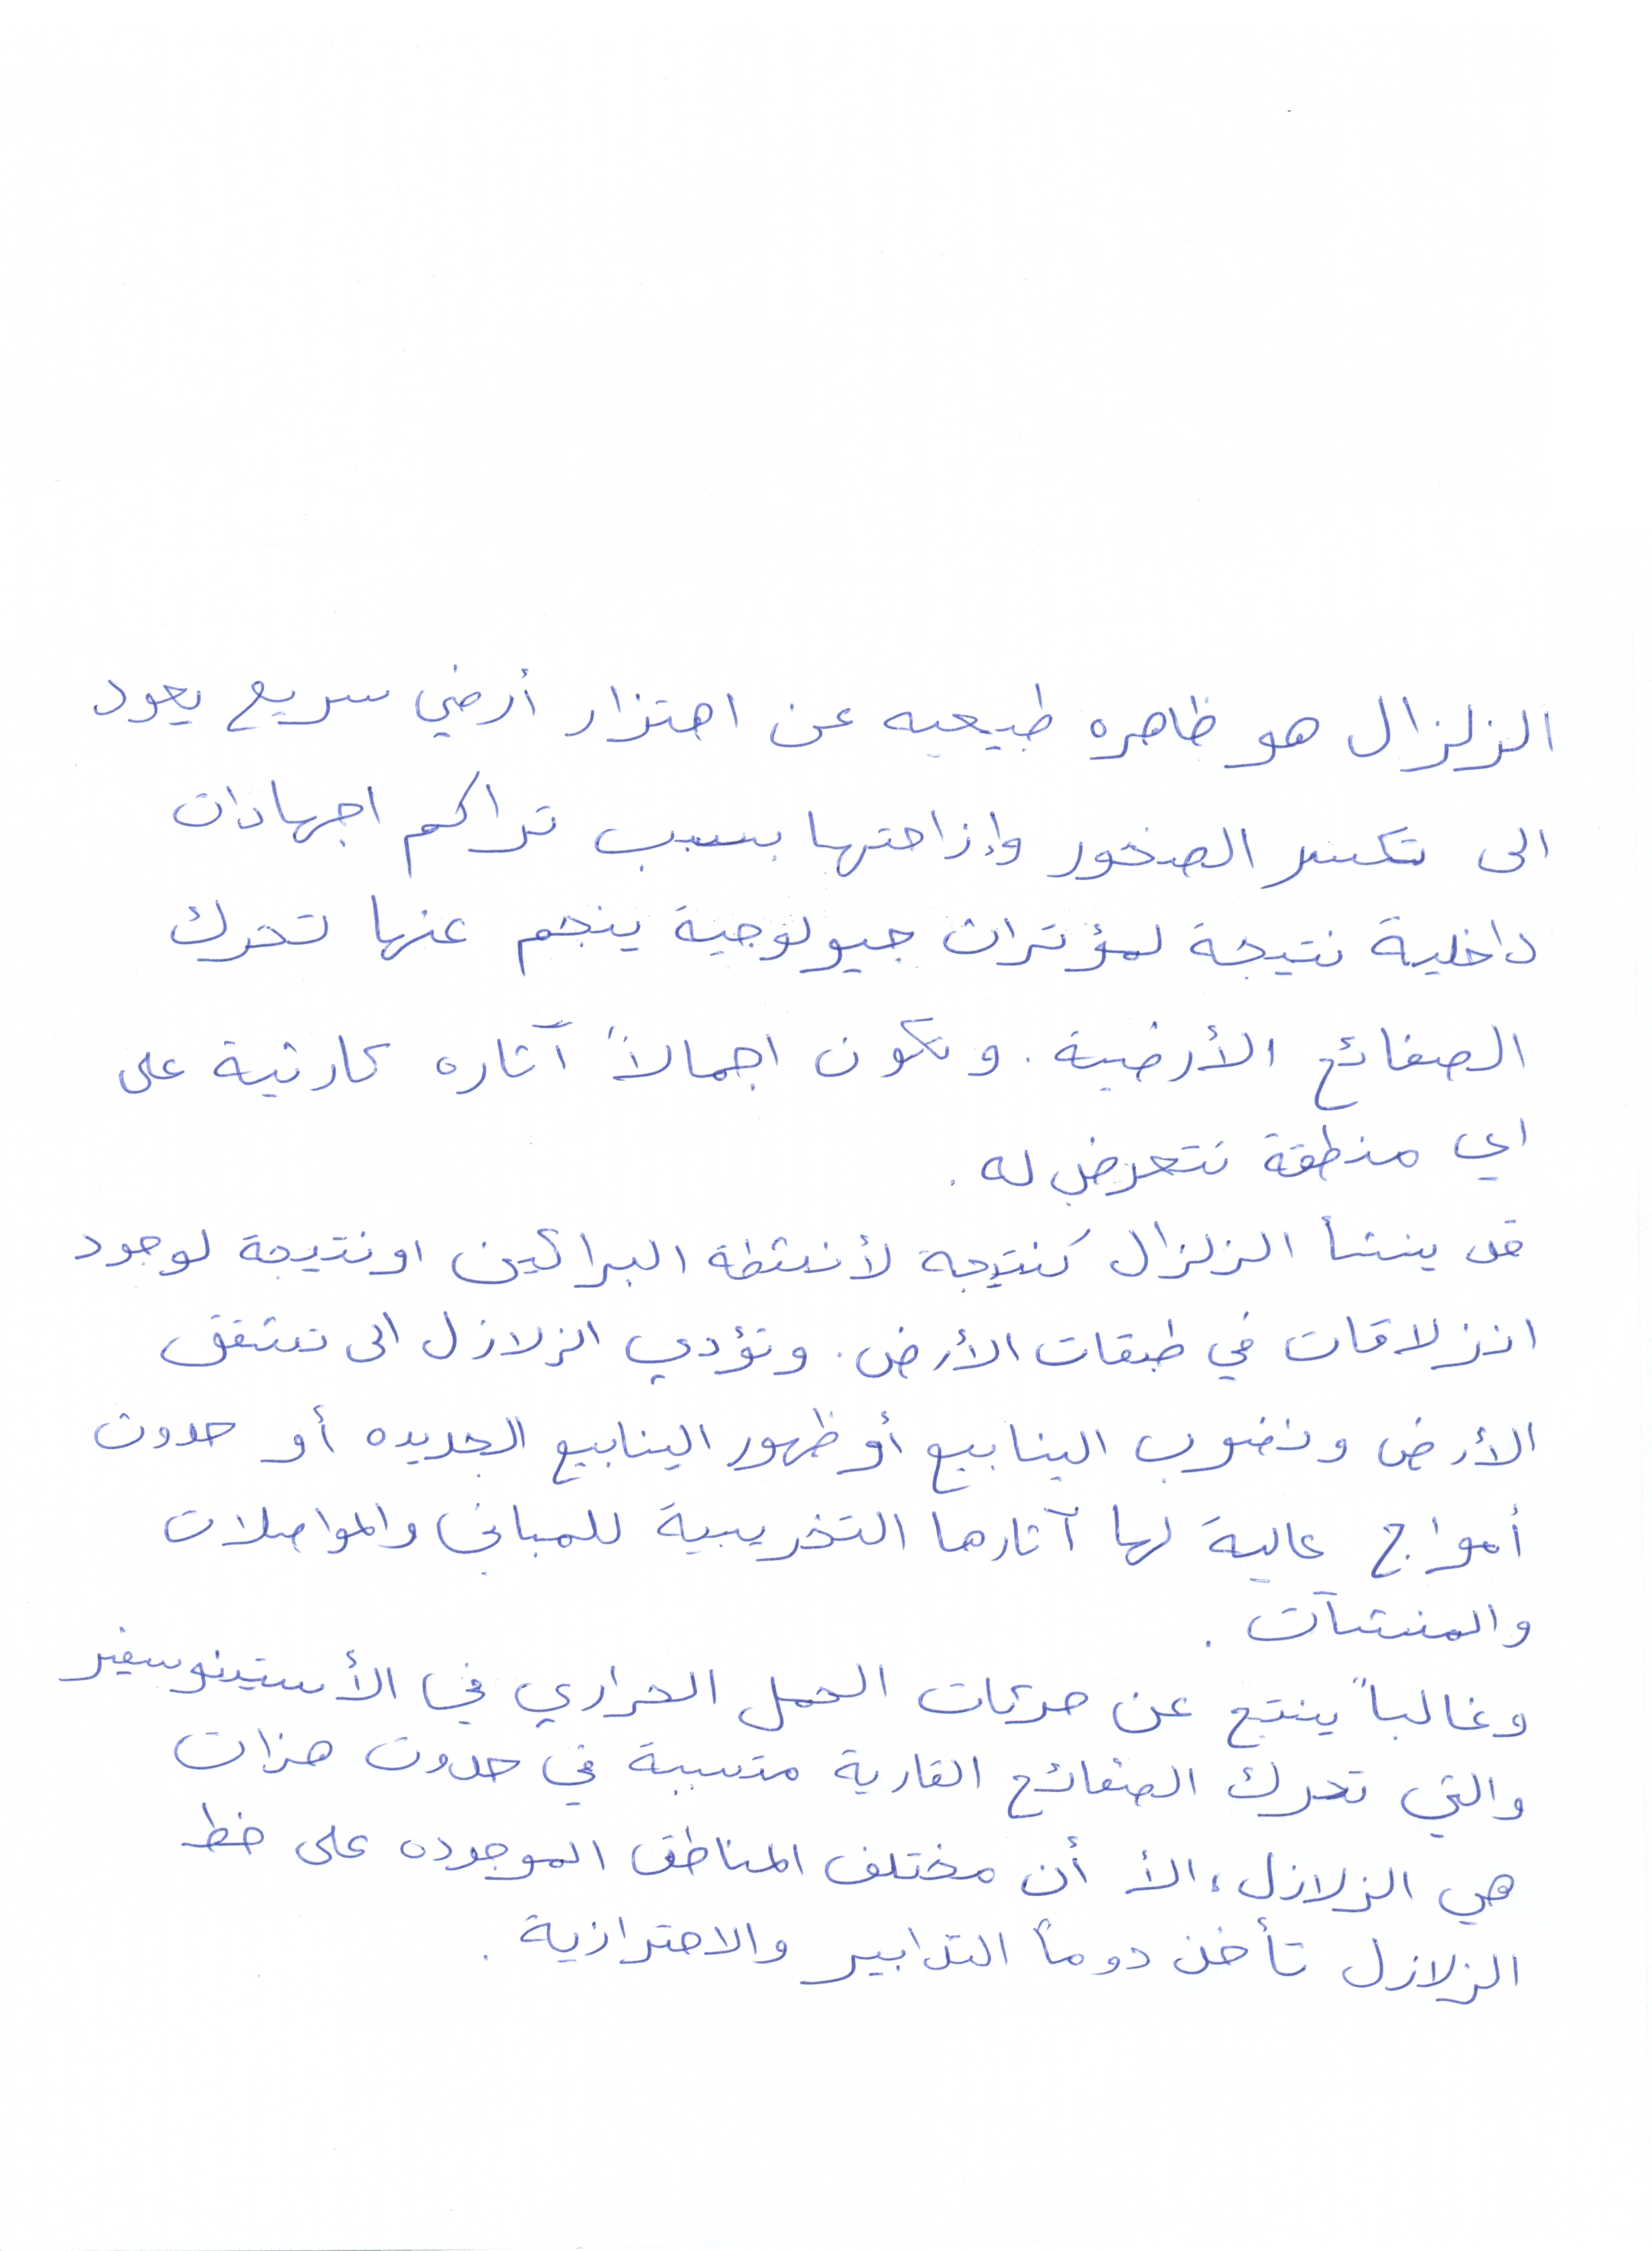 الزلزال هو ظاهره طبيعيه عن اهتزار أرضي سريع يعود
الى تكسر الصخور وإزاحتها بسبب تراكم اجهادات
داخلية نتيجة لمؤثرات جيولوجية ينجم عنها تحرك
الصفائح الأرضية. وتكون اجمالاً آثاره كارثية على
اي منطقة تتعرض له.
قد ينشأ الزلزال كنتيجة لأنشطة البراكين او نتيجة لوجود
انزلاقات في طبقات الأرض. وتؤدي الزلازل الى تشقق
الأرض ونضوب الينابيع أو ظهور الينابيع الجديده أو حدوث
أمواج عالية لها آثارها التخريبية للمباني والمواصلات
والمنشآت.
وغالباً ينتج عن حركات الحمل الحراري في الأستينوسفير
والتي تحرك الصفائح القارية متسببة في حدوث هزات
هي الزلازل، الأ أن مختلف المناطق الموجوده على خط
الزلازل تأخذ دوماً التدابير والاحترازية.